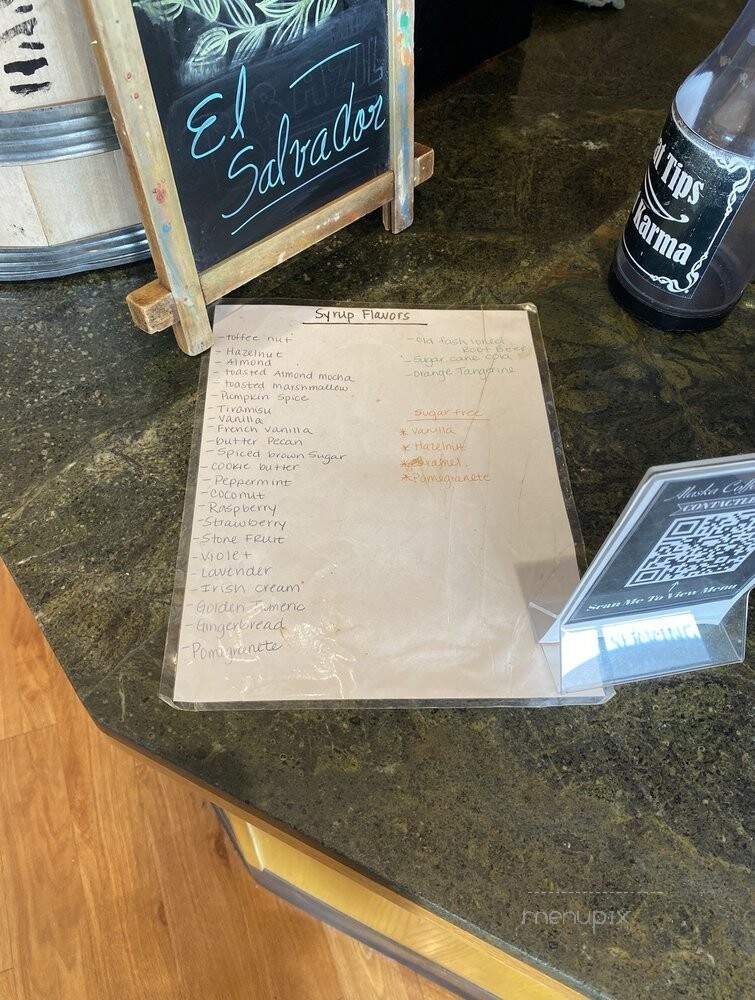 El
Salvador
Tips
Karma
Syrup Flavors
- toffee nut
- Hazelnut
- Almond
- toasted Almond mocha
- toasted marshmallow
- Pumpkin Spice
- Tiramisu
- Vanilla
- French vanilla
- butter Pecan
- Spiced brown Sugar
- cookie butter
- Peppermint
- Coconut
- Raspberry
- Strawberry
- Stone Fruit
- Violet
- Lavender
- Irish cream
- Golden Tumeric
- Gingerbread
- Pomegranete
- Old fashioned
Root Beer
- Sugar cane cola
- Orange Tangerine
Sugar free
* Vanilla
* Hazelnut
* Caramel
* Pomegranete
Alaska Coffe
CONTACTL
Scan Me To View Menu
menupix